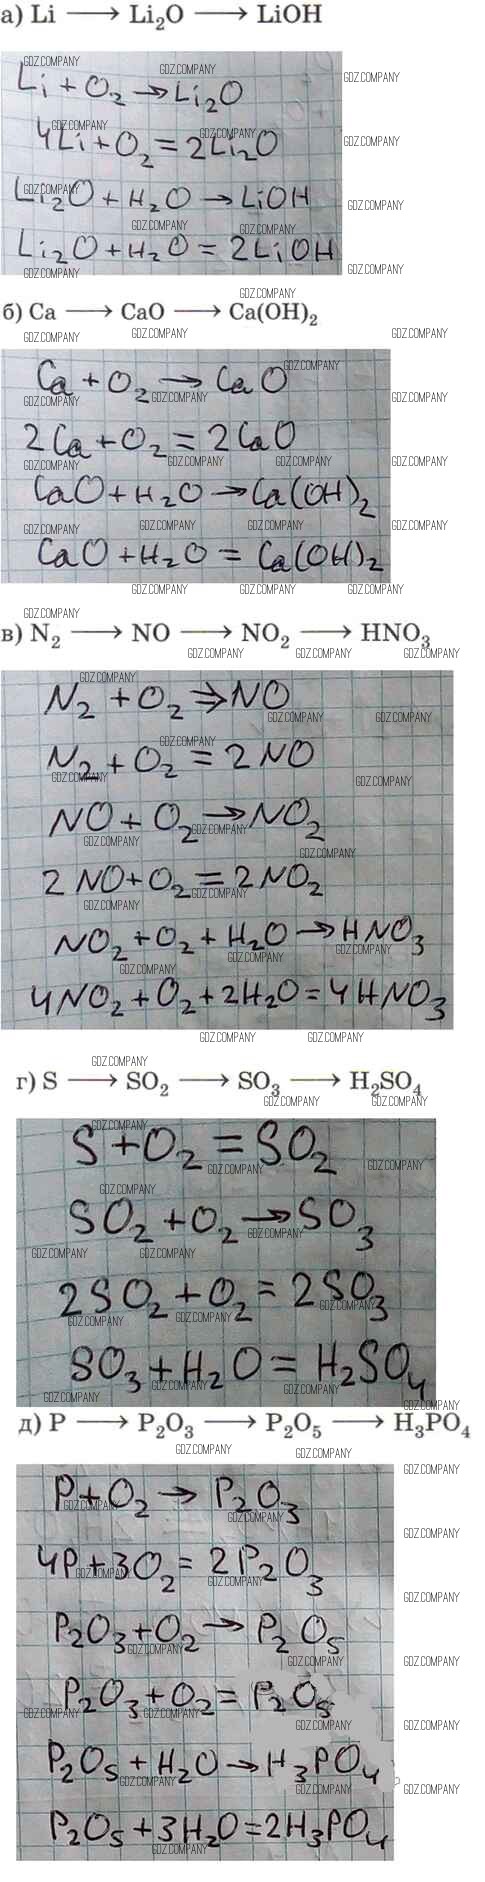 а) Li → Li₂O → LiOH
Li + O₂ → Li₂O
4Li + O₂ = 2Li₂O
Li₂O + H₂O → LiOH
Li₂O + H₂O = 2LiOH
б) Ca → CaO → Ca(OH)₂
Ca + O₂ → CaO
2Ca + O₂ = 2CaO
CaO + H₂O → Ca(OH)₂
CaO + H₂O = Ca(OH)₂
в) N₂ → NO → NO₂ → HNO₃
N₂ + O₂ → NO
N₂ + O₂ = 2NO
NO + O₂ → NO₂
2NO + O₂ = 2NO₂
NO₂ + O₂ + H₂O → HNO₃
4NO₂ + O₂ + 2H₂O = 4HNO₃
г) S → SO₂ → SO₃ → H₂SO₄
S + O₂ = SO₂
SO₂ + O₂ → SO₃
2SO₂ + O₂ = 2SO₃
SO₃ + H₂O = H₂SO₄
д) P → P₂O₃ → P₂O₅ → H₃PO₄
P + O₂ → P₂O₃
4P + 3O₂ = 2P₂O₃
P₂O₃ + O₂ → P₂O₅
P₂O₃ + O₂ = P₂O₅
P₂O₅ + H₂O → H₃PO₄
P₂O₅ + 3H₂O = 2H₃PO₄
GDZ.COMPANY